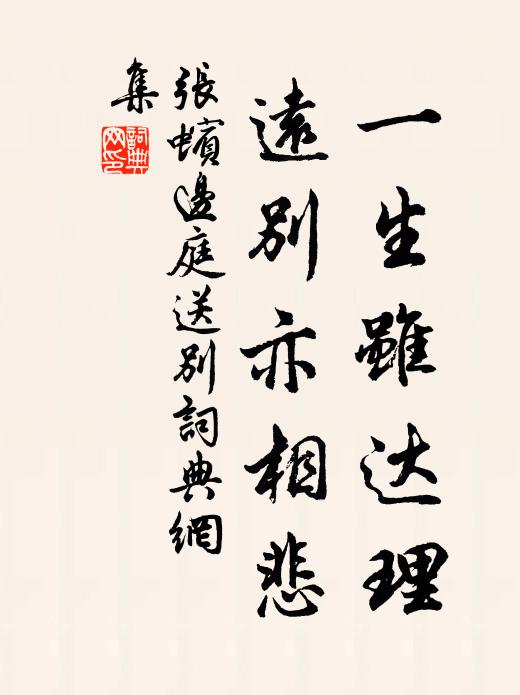 一生雖达理
遠別亦相悲
張蠙邊庭送別詞典網
集
詞典网印